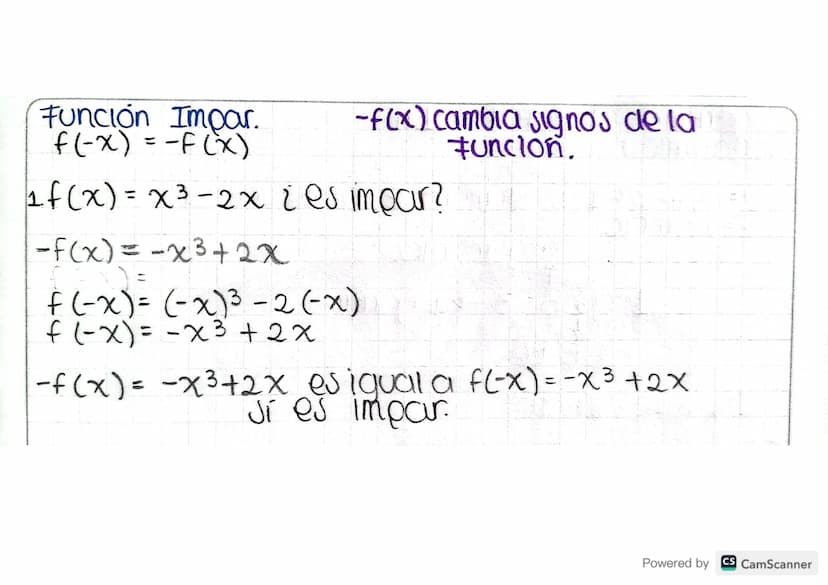 Función Impar.
f(-x) = -f(x)
-f(x) cambia signos de la
función.
1 f(x) = x³ - 2x ¿es impar?
-f(x) = -x³ + 2x
) =
f(-x) = (-x)³ - 2(-x)
f(-x) = -x³ + 2x
-f(x) = -x³+2x es igual a f(-x) = -x³ + 2x
sí es impar.
Powered by CS CamScanner